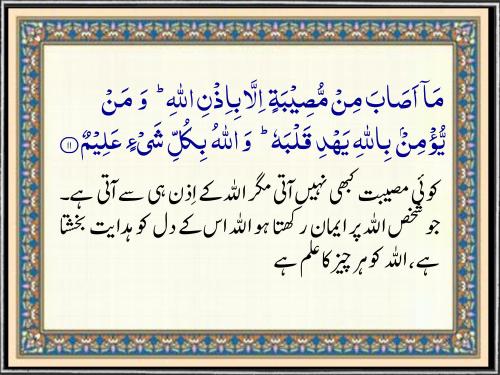 مَاۤ اَصَابَ مِنْ مُّصِیْبَةٍ اِلَّا بِاِذْنِ اللّٰهِ ؕ وَ مَنْ
یُّؤْمِنْۢ بِاللّٰهِ یَهْدِ قَلْبَهٗ ؕ وَ اللّٰهُ بِكُلِّ شَیْءٍ عَلِیْمٌ ۱۱
کوئی مصیبت کبھی نہیں آتی مگر اللہ کے اِذن ہی سے آتی ہے۔
جو شخص اللہ پر ایمان رکھتا ہو اللہ اس کے دل کو ہدایت بخشتا
ہے، اللہ کو ہر چیز کا علم ہے